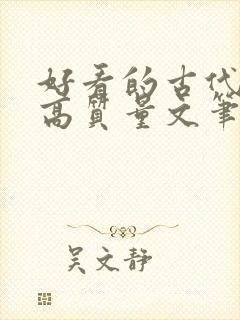 好看的古代
高质量文笔
吴文静